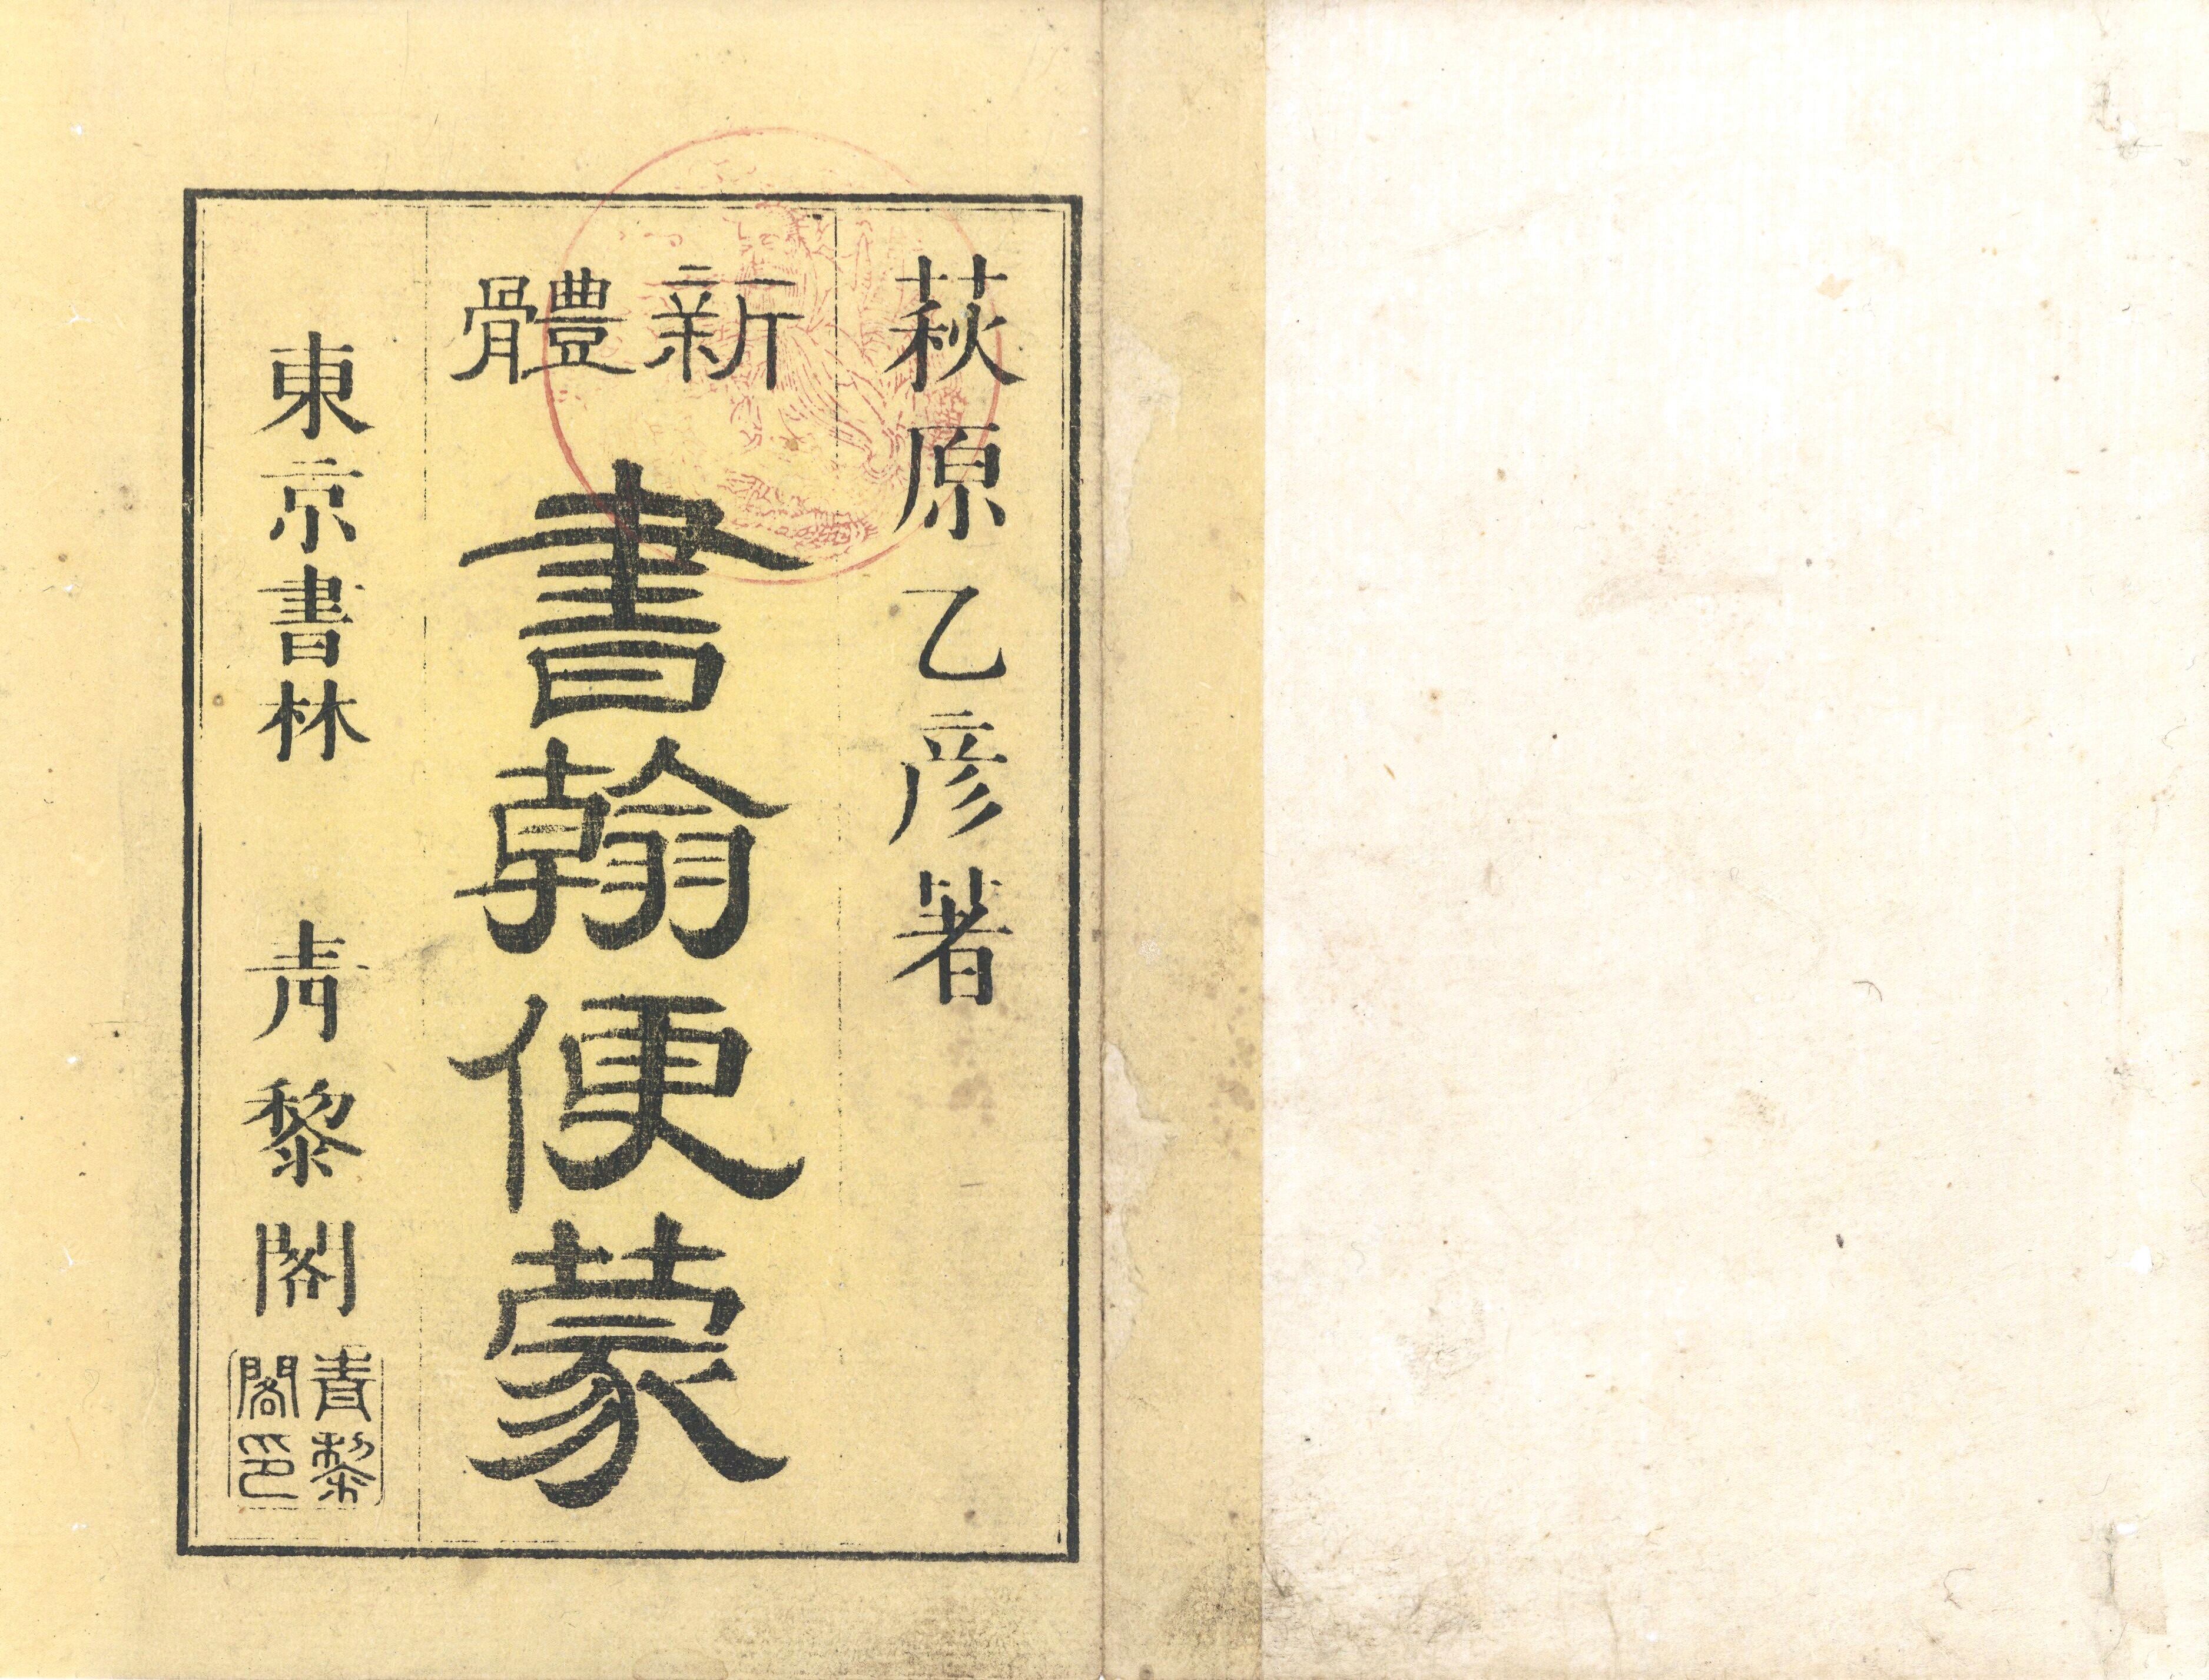 萩原乙彦著
新體
書翰便蒙
東京書林 青黎閣
青黎
閣印